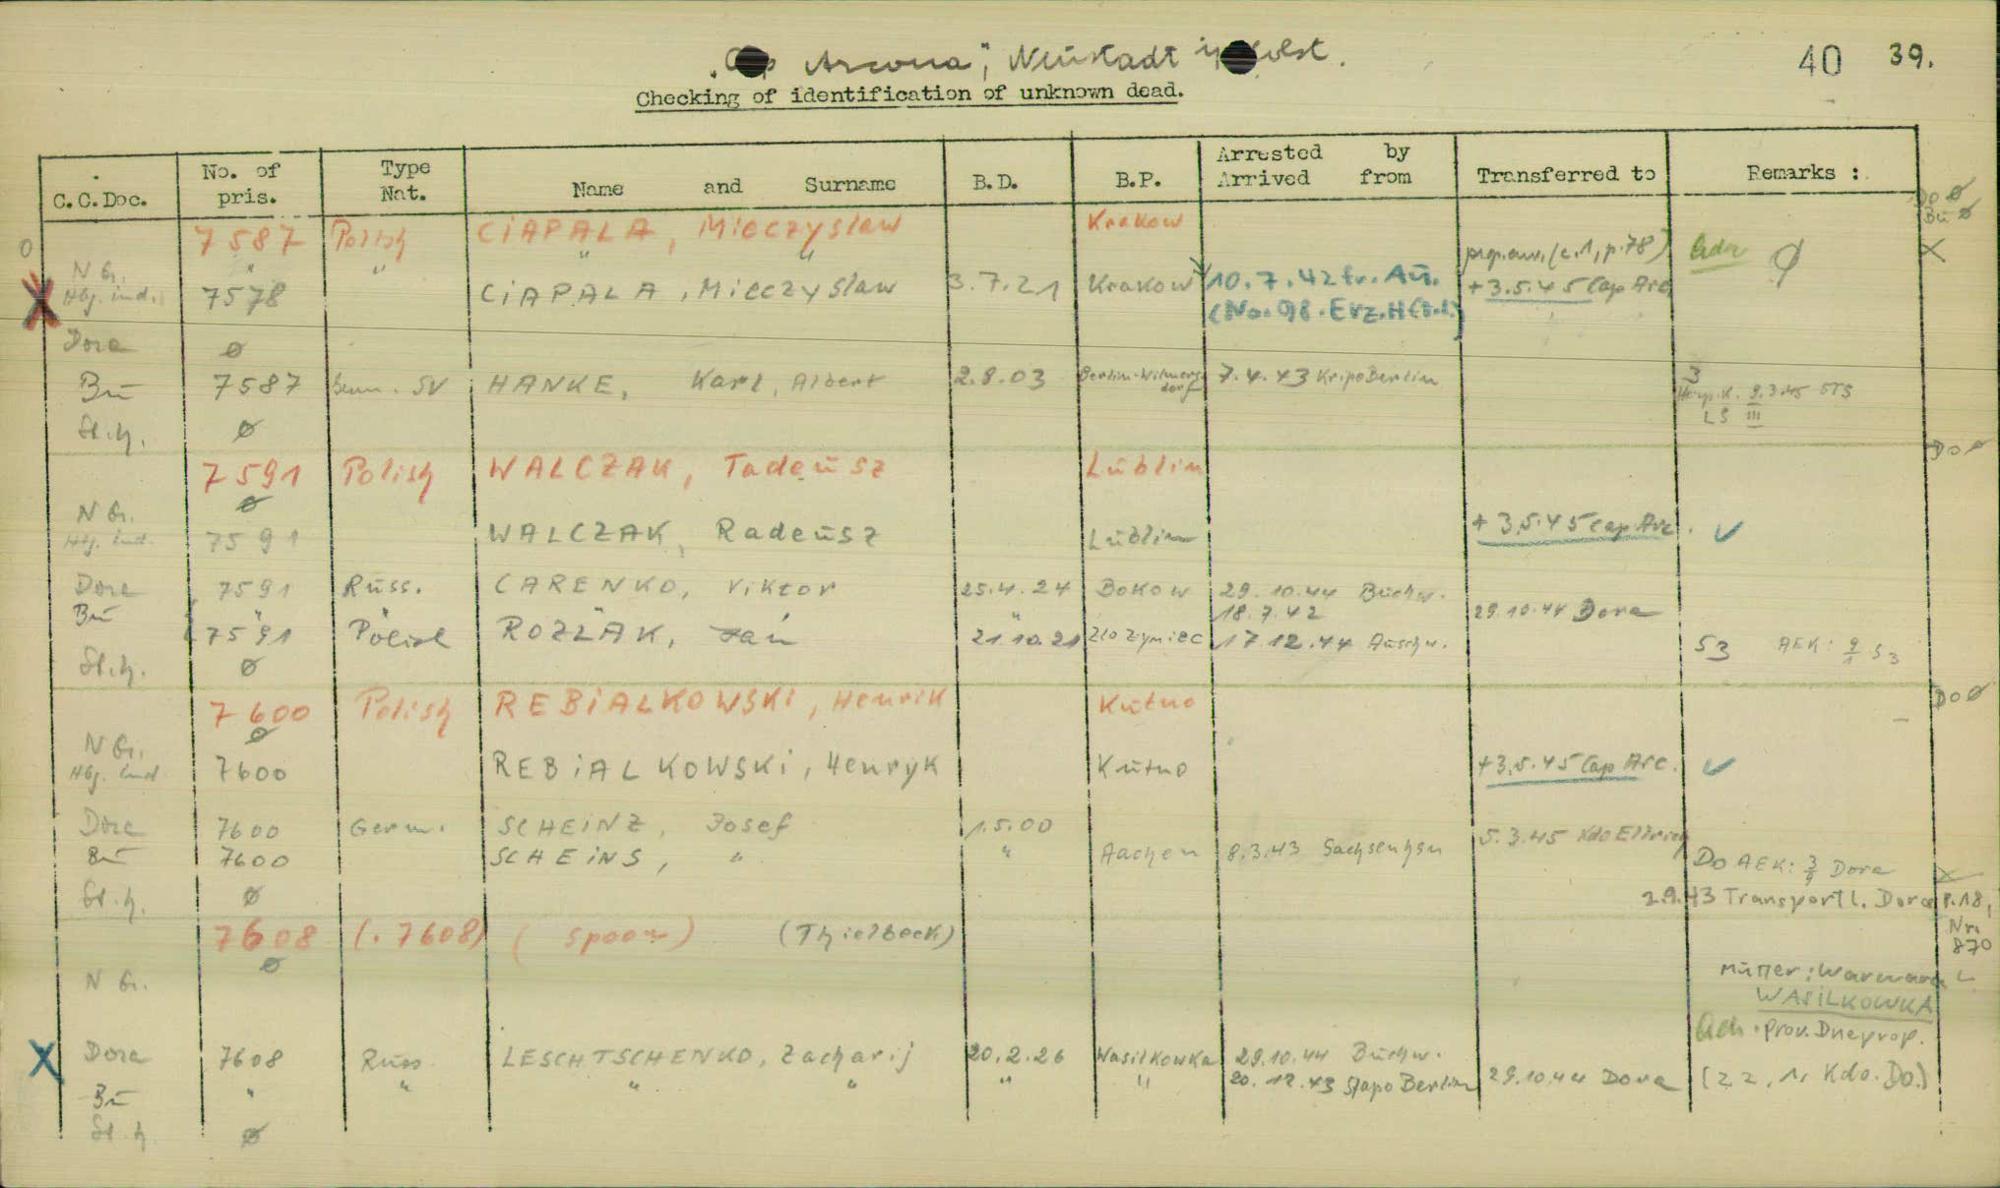 "Cap Arcona", Neustadt i/Holst.
40 39.
Checking of identification of unknown dead.
C.C.Doc. No. of pris. Type Nat. Name and Surname B.D. B.P. Arrested by Arrived from Transferred to Remarks :
Do ø
Bu ø
o 7587 Polish CIAPALA, Mieczyslaw Krakow
" " " " (c.1, p.78) X
N Gr.
X Hbg. ind. 7578 CIAPALA, Mieczyslaw 3.7.21 Krakow 10.7.42 fr. Au. + 3.5.45 Cap Arc. ø
(No. 98. Erz.H
Dora ø
Bu 7587 SV HANKE, Karl, Albert 2.8.03 Berlin-Wilmersdorf 7.4.43 Kripo Berlin 3
9.3.45
LS III
St.h. ø
Do ø
7591 Polish WALCZAK, Tadeusz Lublin
N Gr. ø
Hbg. ind. 7591 WALCZAK, Radeusz Lublin + 3.5.45 Cap Arc. ✓
Dora 7591 Russ. CARENKO, Viktor 25.4.24 Bokow 29.10.44 Buchw.
Bu " " " " 18.7.42 29.10.44 Dora
7591 Polish ROZLAK, Jan 21.10.21 Zlozymiec 17.12.44 Auschw. S3 AEK: 9/1 S3
St.h. ø
Do ø
7600 Polish REBIALKOWSKI, Henrik Kutno
N Gr. ø
Hbg. ind 7600 REBIALKOWSKI, Henryk Kutno +3.5.45 Cap Arc. ✓
Dora 7600 Germ. SCHEINZ, Josef 1.5.00 5.3.45 Kdo Ellrich
Bu 7600 SCHEINS, " " Aachen 8.3.43 Sachsenhsn Do AEK: 3/9 Dora X
St.h. ø 2.9.43 Transportl. Dora P.18,
Nr. 870
7608 (. 7608) ( Spoon ) (Thielbeck)
ø
N Gr. Mutter: Warwara
WASILKOWKA
Prov. Dneprop.
X Dora 7608 Russ LESCHTSCHENKO, Zacharij 20.2.26 Wasilkowka 29.10.44 Buchw.
Bu " " " " " " 20.12.43 Stapo Berlin 29.10.44 Dora (22, 1, Kdo. Do.)
St.h ø